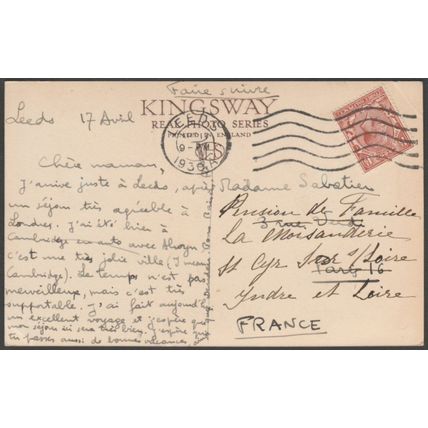 Faire suivre
KINGSWAY
REAL PHOTO SERIES
PRINTED IN ENGLAND
LEEDS
1936
Leeds 17 Avril
Chère maman,
J'arrive juste à Leeds, après
un séjour très agréable à
Londres. J'ai été bien à
Cambridge en auto avec
c'est une très jolie ville (
Cambridge). Le temps n'est pas
merveilleux, mais c'est très
supportable. J'ai fait aujourd'hui
un excellent voyage et j'espère que
mon séjour ici sera très bien. J'espère que
tu passes aussi de bonnes vacances
Madame Sabatier
Pension de Famille
3 rue
La Choisanderie
St Cyr sur s/Loire
Paris 16
Indre et Loire
FRANCE